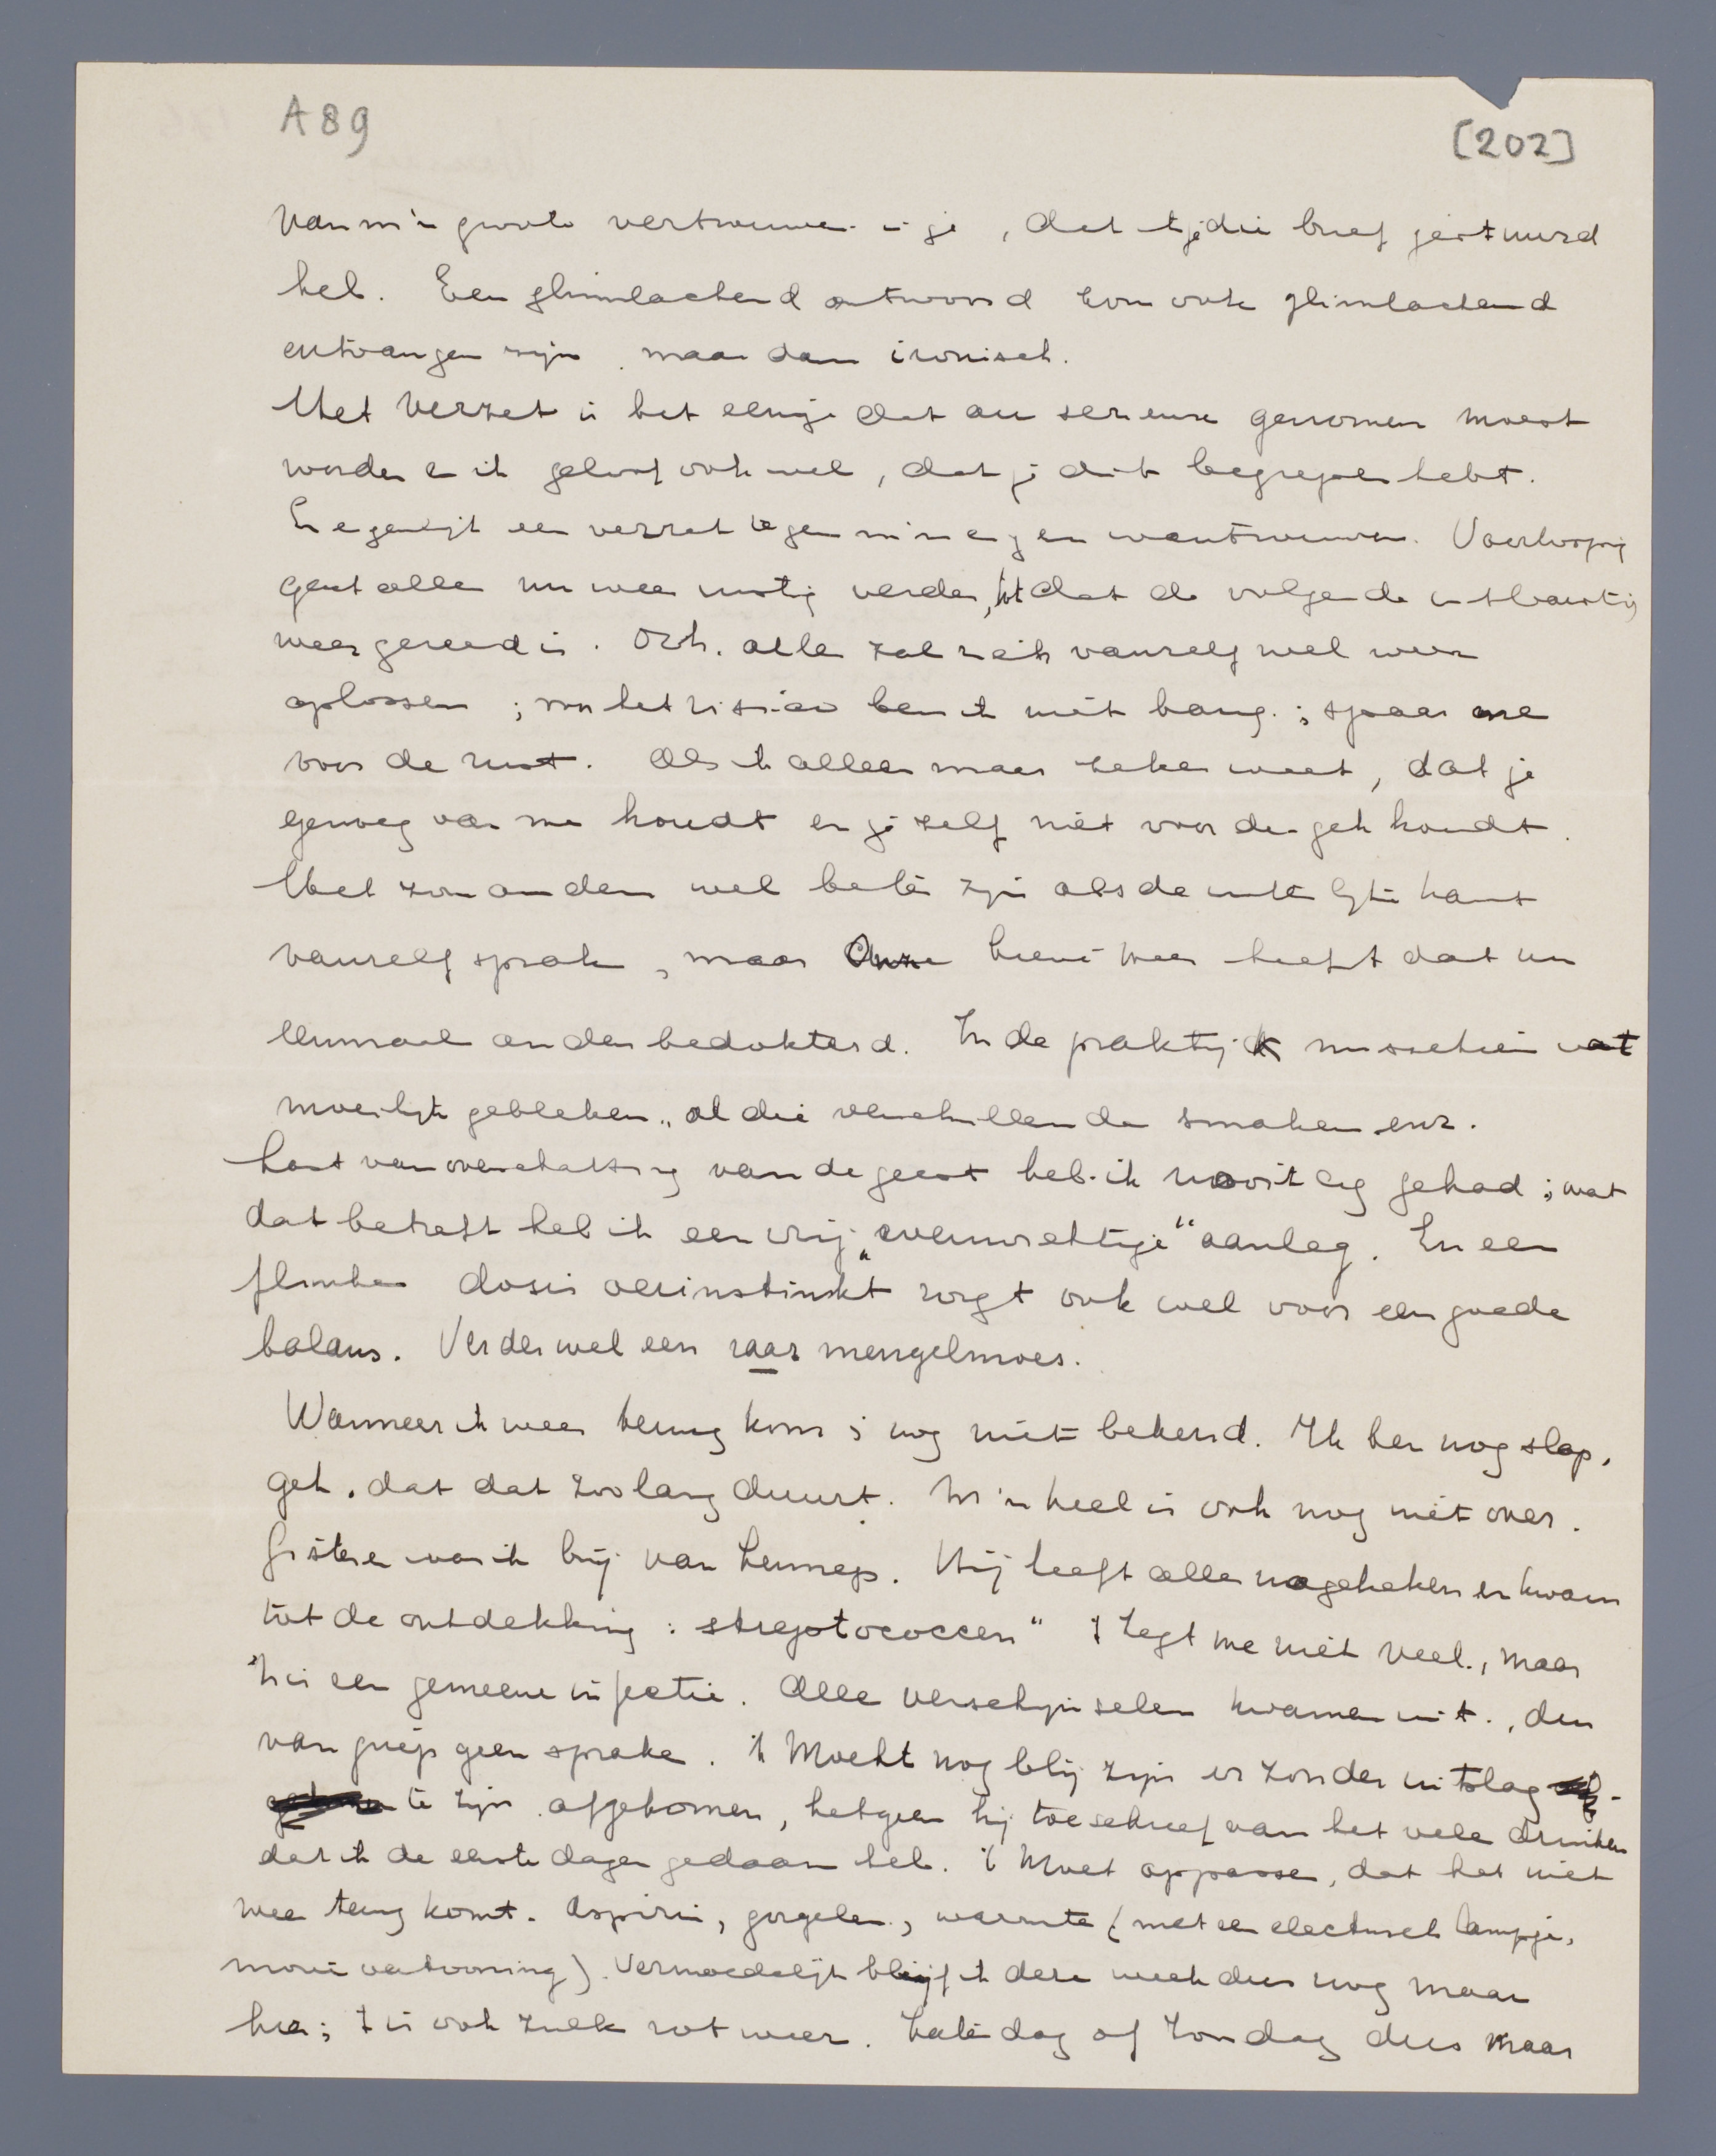 A89
[202]
van m'n groote vertrouwen in je, dat ik je die brief gestuurd
heb. Een glimlachend antwoord zou ook glimlachend
ontvangen zijn, maar dan ironisch.
Het verzet is het eenige dat au serieux genomen moest
worden en ik geloof ook wel, dat je dit begrepen hebt.
En eigenlijk een verzet tegen m'n eigen wantrouwen. Voorloopig
gaat alles nu weer rustig verder, tot dat de volgende uitbarsting
weer gereed is. Och, alles zal zich vanzelf wel weer
oplossen; van het risico ben ik niet bang; spaar me
voor de rust. Als ik alleen maar zeker weet, dat je
genoeg van me houdt en je zelf niet voor de gek houdt.
Het zou anders wel beter zijn als de uiterlijke kant
vanzelf sprak, maar Onze Lieve Heer heeft dat nu
eenmaal anders bedokterd. In de praktijk misschien wat
moeilijk gebleken, al die verschillende smaken enz.
Last van overschatting van de geest heb ik nooit erg gehad; wat
dat betreft heb ik een vrij „evenwichtige" aanleg. En een
flinke dosis oerinstinkt zorgt ook wel voor een goede
balans. Verder wel een raar mengelmoes.
Wanneer ik weer terug kom is nog niet bekend. Ik ben nog slap,
gek, dat dat zoo lang duurt. M'n keel is ook nog niet over.
Gisteren was ik bij van Lennep. Hij heeft alles nagekeken en kwam
tot de ontdekking: streptococcen" 't Zegt me niet veel, maar
't is een gemeene infectie. Alle verschijnselen kwamen uit, dus
van griep geen sprake. 'k Mocht nog blij zijn er zonder uitslag
te zijn afgekomen, hetgeen hij toeschreef aan het vele drinken
dat ik de eerste dagen gedaan heb. 'k Moet oppassen, dat het niet
weer terug komt. Aspirin, gorgelen, warmte (met een electrisch lampje,
mooie vertooning). Vermoedelijk blijf ik deze week dus nog maar
hier; 't is ook zulk rot weer. Zaterdag of Zondag dus maar